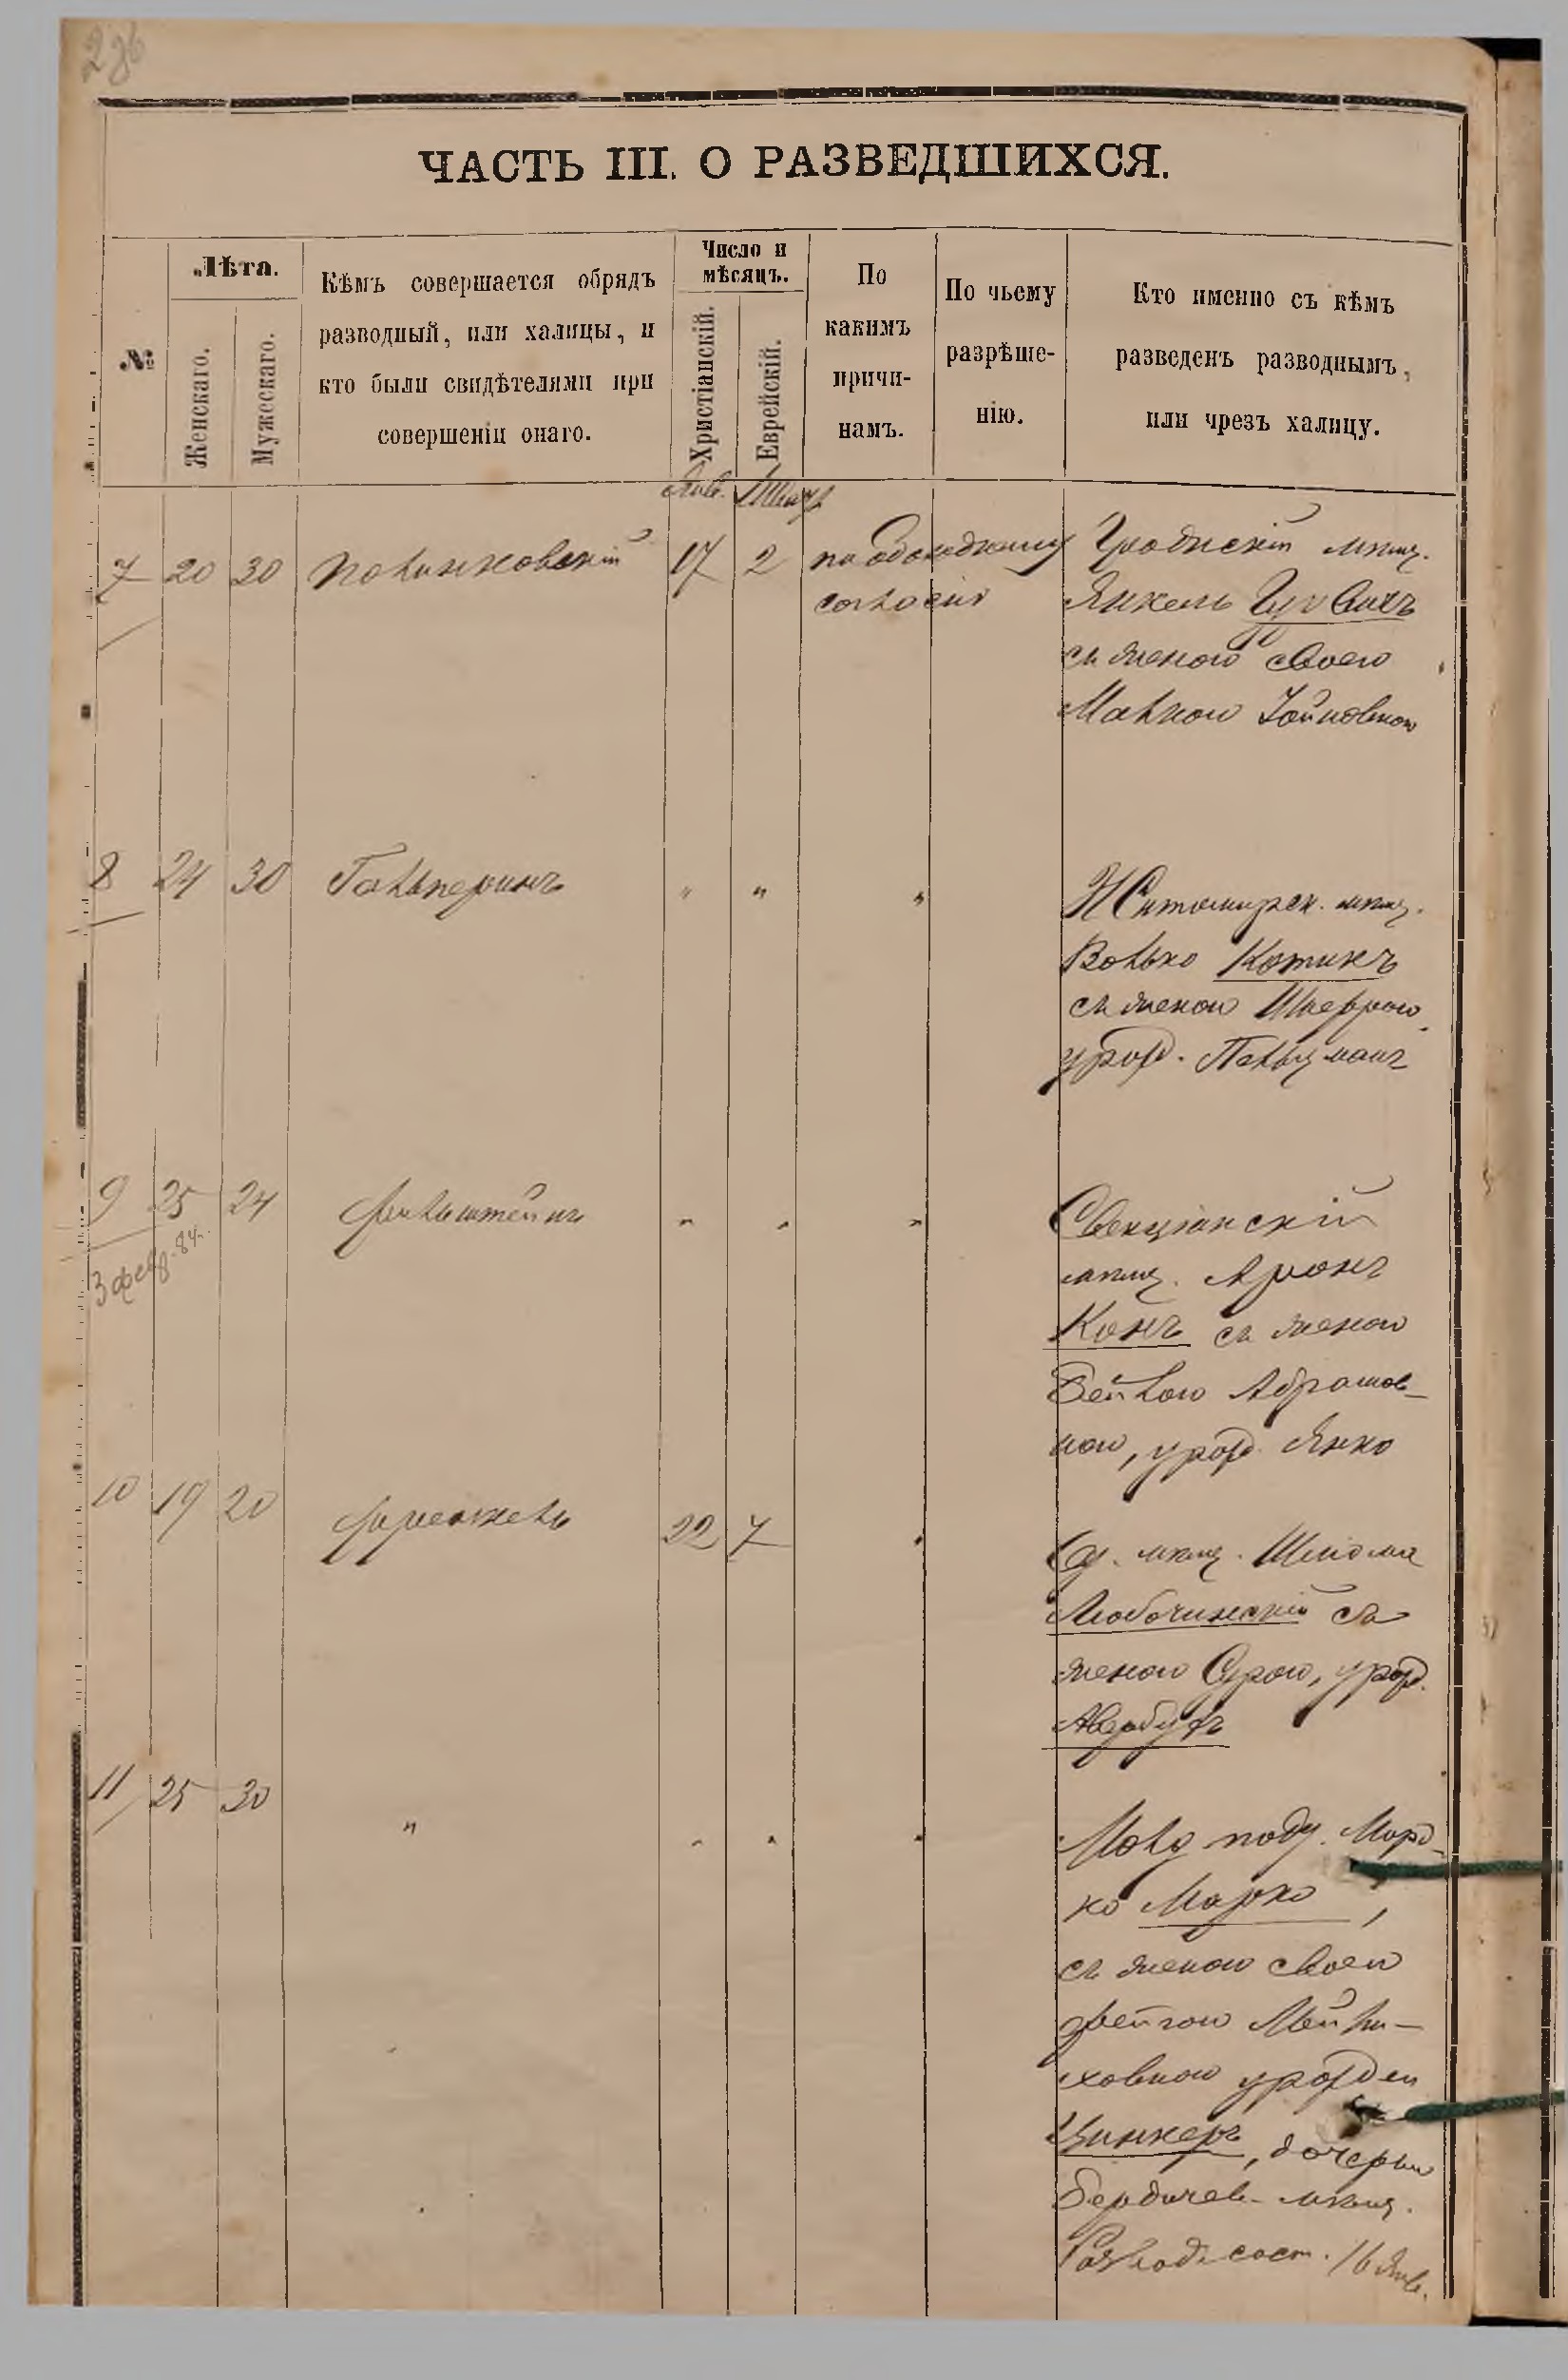 ЧАСТЬ III. О РАЗВЕДШИХСЯ.
№
Лѣта.
Женскаго.
Мужескаго.
Кѣмъ совершается обрядъ
разводный, или халицы, и
кто были свидѣтелями при
совершеніи онаго.
Число и
мѣсяцъ.
Христіанскій.
Еврейскій.
По
какимъ
причи-
намъ.
По чьему
разрѣше-
нію.
Кто именно съ кѣмъ
разведенъ разводнымъ,
или чрезъ халицу.
Янв.
7 20 30 17 2 по обоюдному Гродненскій мѣщ.
согласію Янкель Гурвичъ
съ женою своею
Малкою
8 24 30 Гальперинъ " " " Житомирск. мѣщ.
Волько Котикъ
съ женою Шифрою
урожд. Гальцманъ
9 25 24 Финкельштейнъ " " " Свенцянскій
3 февр. 84 г.
мѣщ. Аронъ
Конъ съ женою
Бейлою Абрамов-
ною, урожд. Янко
10 19 20 Френкель 22 7 " Од. мѣщ. Шлома
Любочинскій съ
женою Сурою, урожд.
Авербухъ
11 25 30 " " " " Молд. подд. Морд-
ко Марко,
съ женою своею
Фейгою
ховною урожден
Цинкеръ, дочерью
Бердичев. мѣщ.
Разводъ сост. 16 Янв.